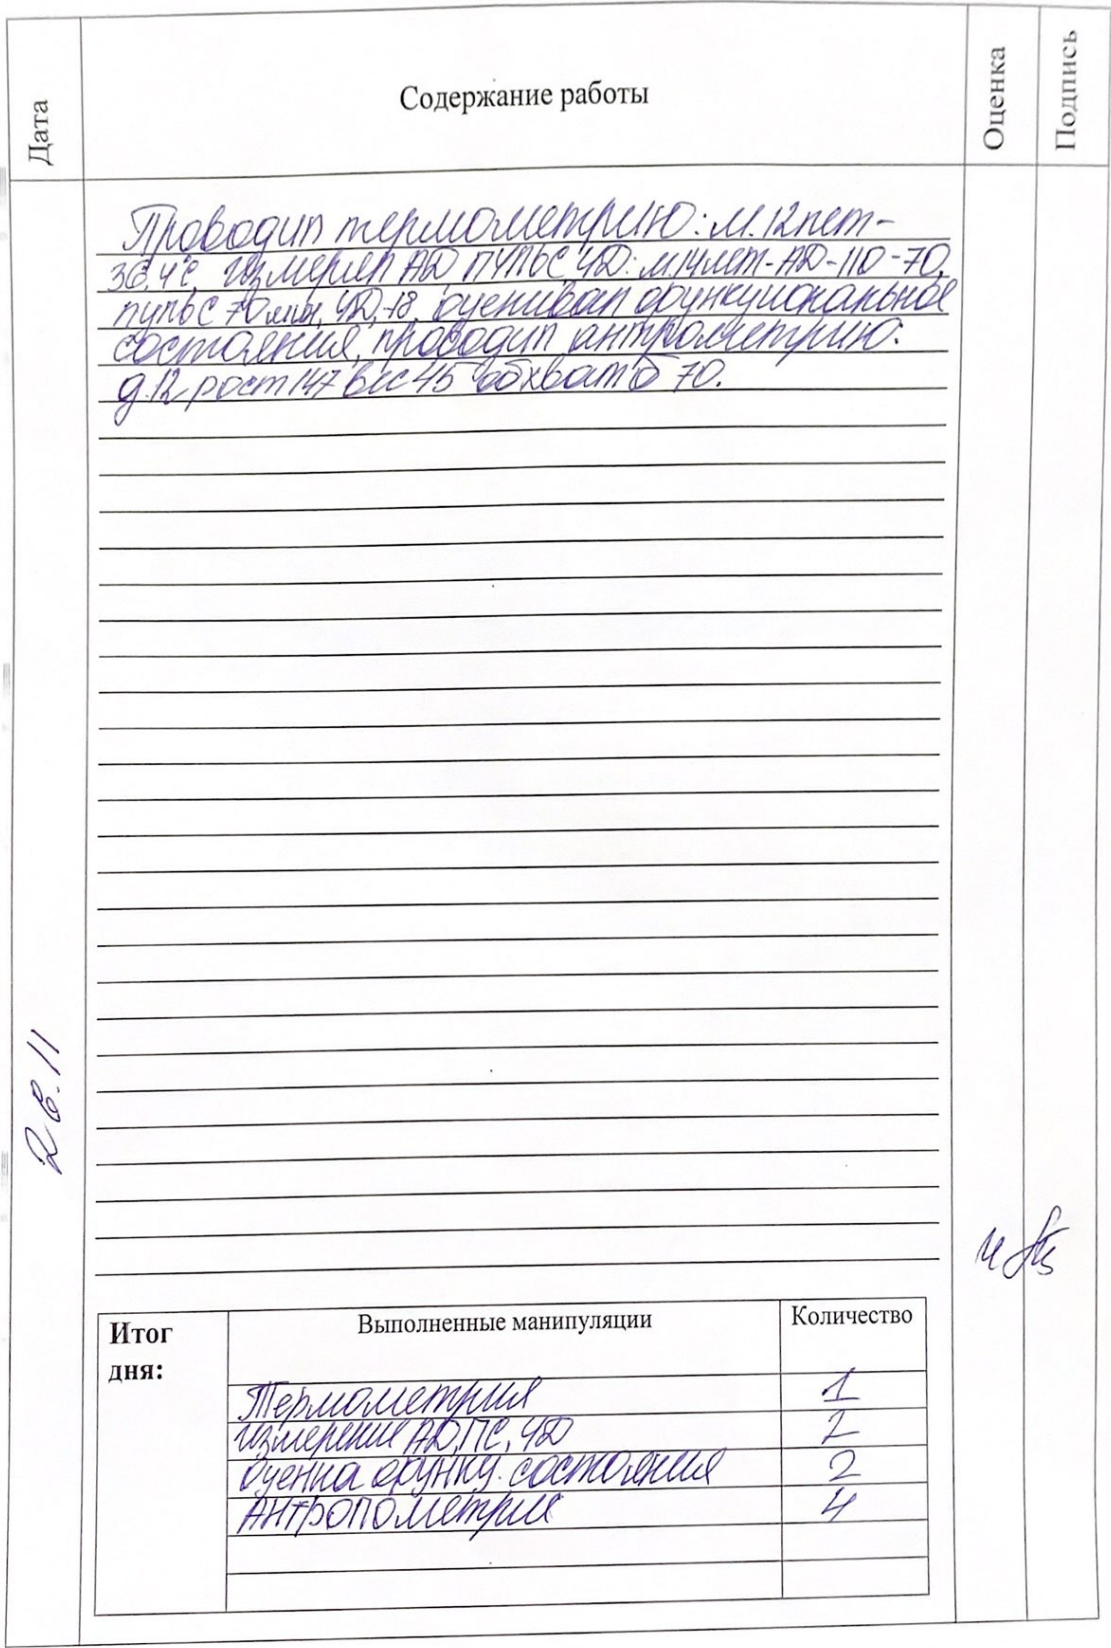 Дата
Содержание работы
Оценка
Подпись
Проводил термометрию: м.12лет-
36,4°С, измерял АД, пульс, ЧД: м.14лет-АД-110-70,
пульс 70мин, ЧД-18, оценивал функциональное
состояния, проводил антрометрию:
д.12 рост 147 вес 45 обхват б 70.
4
Итог
дня:
Выполненные манипуляции
Количество
Термометрия
1
измерение АД, ПС, ЧД
2
Оценка функц. состояния
2
Антропометрия
4